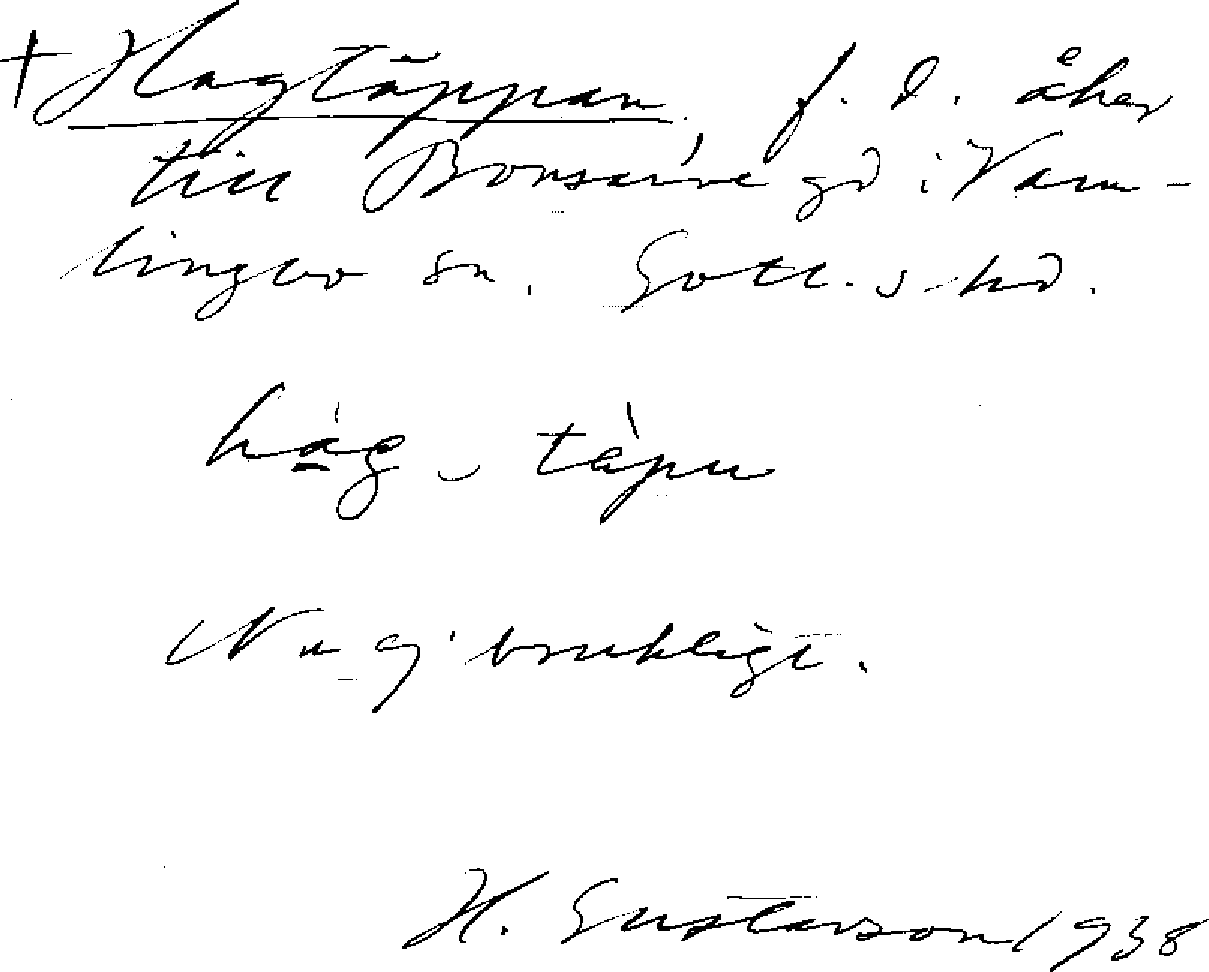 † Hagtäppan, f. d. åker
till Bonsarve gd i Vam-
lingbo sn. Gotl. s. hd.
hág ‿ tàpu
Nu ej brukligt.
H. Gustavson 1938